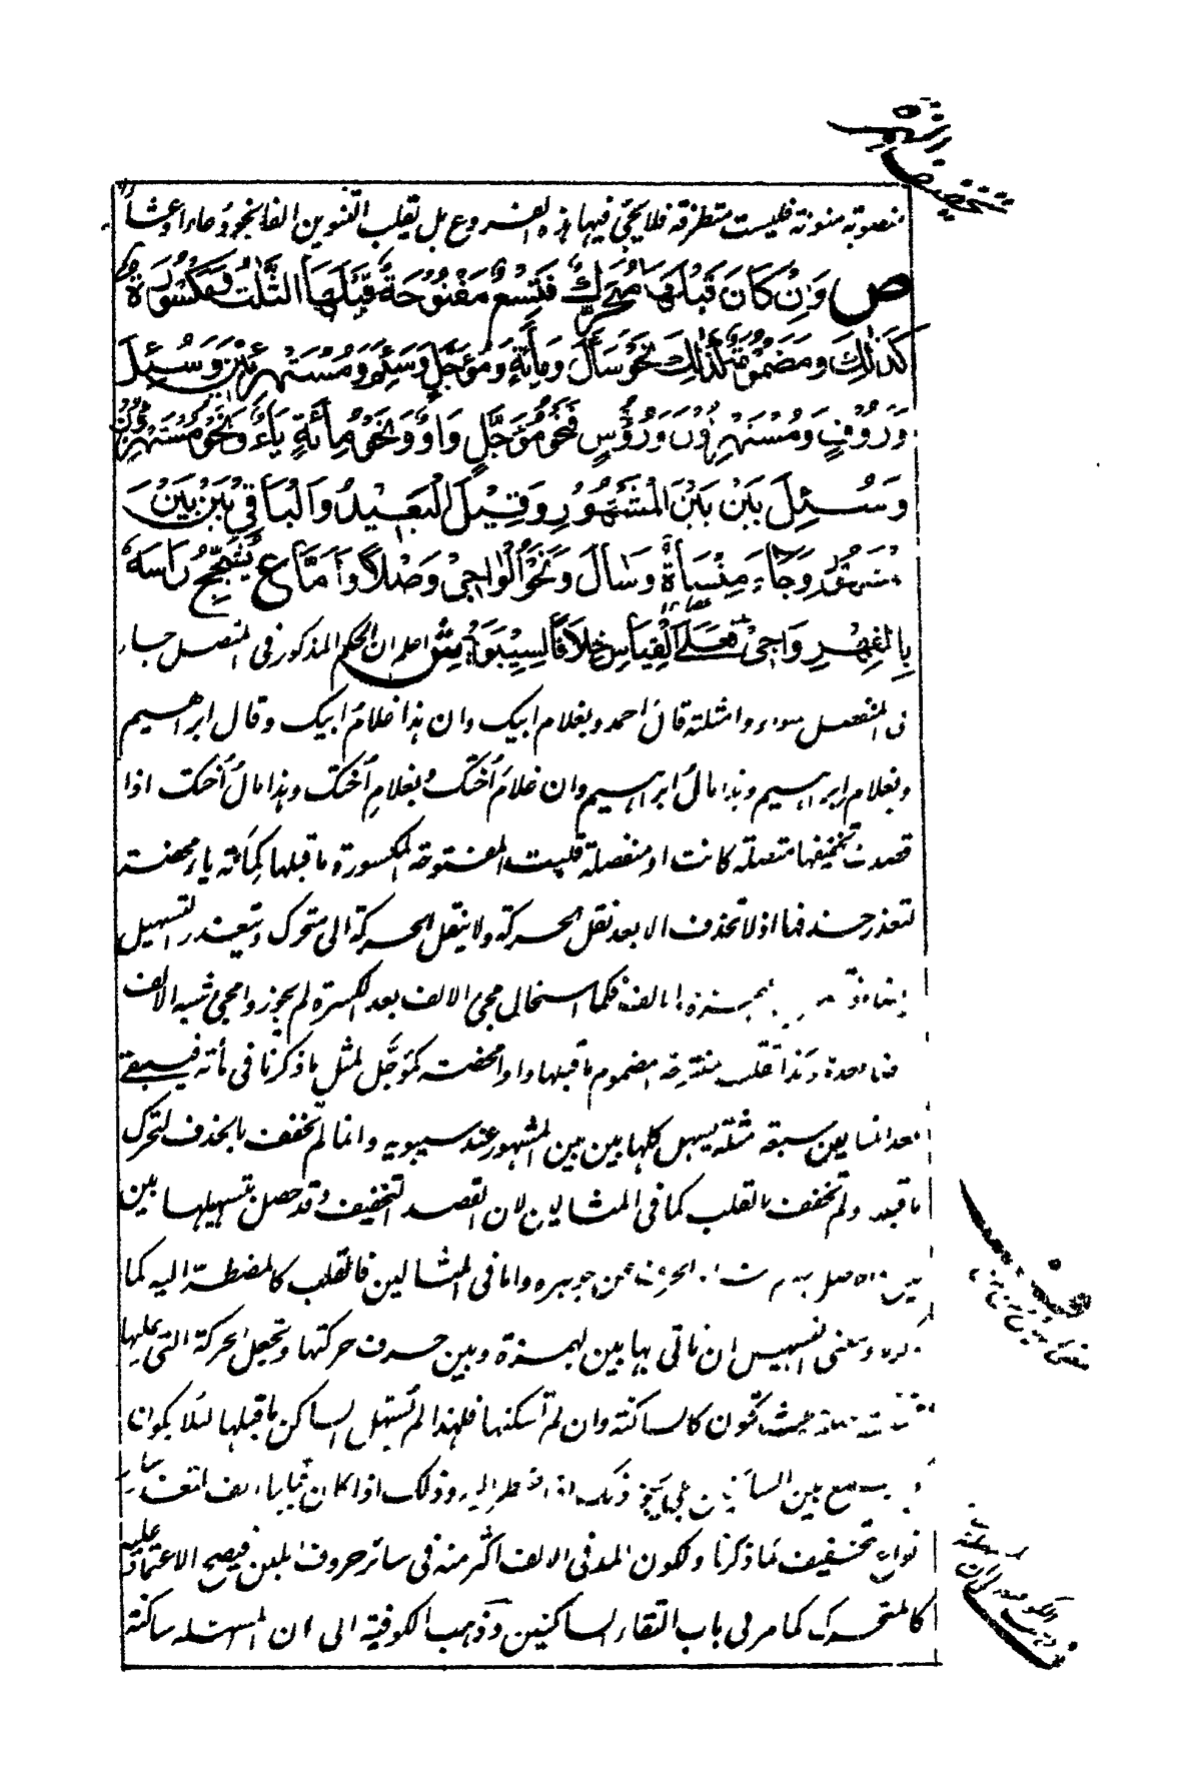 منصوبة منونة فليست متطرفة فلا يجئ فيها هذه الفروع بل تقلب التنوين الفا نحو دعاءا وعشاءا
ص وَاِنْ كَانَ قَبْلَهَا مُتَحَرِّكٌ فَتِسْعٌ مَفْتُوْحَةٌ قَبْلَهَا الثَّلٰثُ وَمَكْسُوْرَةٌ
كَذٰلِكَ وَمَضْمُوْمَةٌ كَذٰلِكَ نَحْوُ سَأَلَ وَمِأَةٍ وَمُؤَجَّلٍ وَسَئِمَ وَمُسْتَهْزِئِيْنَ وَسُئِلَ
وَرَؤُوْفٍ وَمُسْتَهْزِؤُنَ وَرُؤُسٍ فَنَحْوُ مُؤَجَّلٍ وَاوٌ وَنَحْوُ مِأَةٍ يَاءٌ وَنَحْوُ مُسْتَهْزِؤُنَ
وَسُئِلَ بَيْنَ بَيْنَ الْمَشْهُوْرِ وَقِيْلَ الْبَعِيْدُ وَالْبَاقِيْ بَيْنَ بَيْنَ
الْمَشْهُوْرُ وَجَاءَ مِنْسَاةٌ وَسَالَ وَنَحْوُ الْوَاجِيْ وَصْلًا وَاَمَّا ع يُشَجِّجُ رَاسَهٗ
بِالْفِهْرِ وَاجِيْ فَعَلَى الْقِيَاسِ خِلَافًا لِسِيْبَوَيْهِ ش اعلم ان الحكم المذكور في المتصل جار
في المنفصل سواء وامثلته قال احمد وبغلام ابيك وان هذا غلامُ ابيك وقال ابراهيم
وبغلام ابراهيم وهذا مالُ ابراهيم وان غلامَ اُختك وبغلامِ اُختك وهذا مالُ اُختك اذا
قصدت تخفيفها متصلة كانت او منفصلة قلبت المفتوحة المكسورة ما قبلها كمأة ياء محضة
لتعذر حذفها اذ لا تحذف الا بعد نقل الحركة ولا ينقل الحركة الى متحرك وتعذر التسهيل
الهمزة الالف فكما استحال مجئ الالف بعد الكسرة لم يجوزوا مجئ شبه الالف
وكذا تقلب مفتوحة مضموم ما قبلها واوا محضة كمؤجَّل لمثل ما ذكرنا في مأة فيبقى
بعد المثالين سبعة امثلة يسهل كلها بين بين المشهور عند سيبويه وانما لم تخفف بالحذف لتحرك
ما قبله ولم تخفف بالقلب كما في المثالين لان القصد التخفيف وقد حصل بتسهيلها بين
بين والاصل الحرف عن جوهره واما في المثالين فالقلب كالمضطر اليه كما
ذكرنا ومعنى التسهيل ان تاتي بها بين الهمزة وبين حرف حركتها وتجعل الحركة التي عليها
بحيث تكون كالساكنة وان لم تسكنها فلهذا لم تُسهل الساكن ما قبلها لئلا يكون
كالجمع بين الساكنين بلى يجوز ذلك اضطر اليه وذلك اذا كان قبلها الف لتعذر سائر
انواع تخفيف كما ذكرنا ولكون المد في الالف اكثر منه في سائر حروف اللين فيصح الاعتماد عليه
كالمتحرك كما مر في باب التقاء الساكنين وذهب الكوفية الى ان المسهلة ساكنة